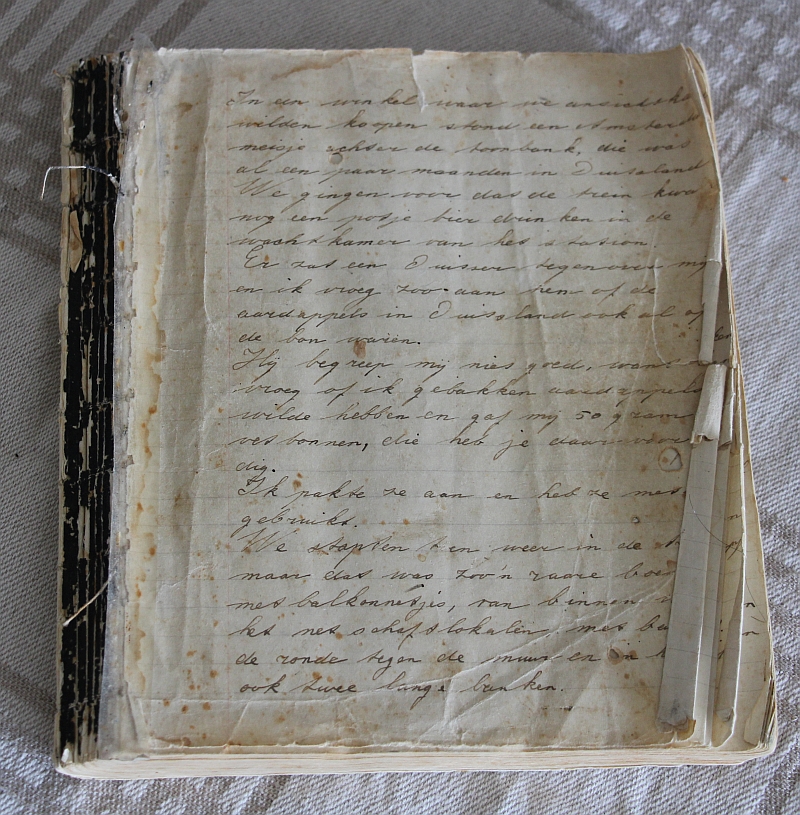 In een winkel waar we
wilden koopen stond een
meisje achter de toonbank, die was
al een paar maanden in Duitsland
We gingen voor dat de trein
nog een potje bier drinken in de
wachtkamer van het station.
Er zat een Duitser tegenover mij
en ik vroeg zoo aan hem of de
aardappels in Duitsland ook al op
de bon waren.
Hij begreep mij niet goed, want
vroeg of ik gebakken aardappels
wilde hebben en gaf mij 50 gram
vet bonnen, die heb je daarvoor
dig.
Ik pakte ze aan en heb ze met
gebruikt.
We stapten ten weer in de
maar dat was zoo'n raare
met balkonnetjes, van binnen
het net schaftlokalen, met
de ronde tegen de muur en in
ook twee lange banken.